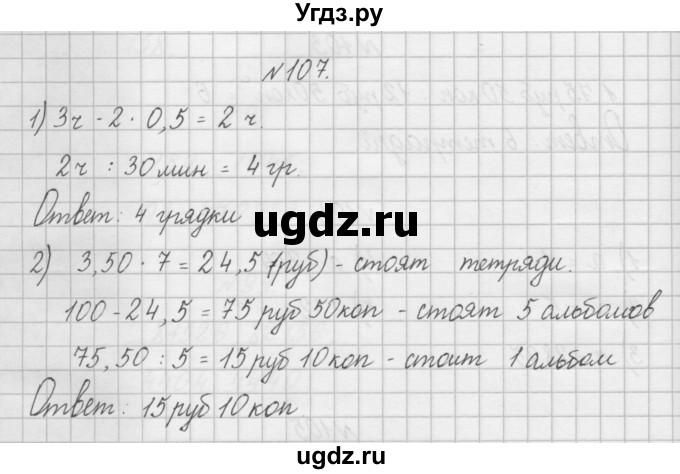 Угдз.ру
№107.
1) 3ч - 2 · 0,5 = 2 ч.
2ч : 30 мин = 4 гр.
Ответ: 4 грядки
ugdz.ru
2) 3,50 · 7 = 24,5 (руб) - стоят тетради.
100 - 24,5 = 75 руб 50 коп - стоят 5 альбомов
75,50 : 5 = 15 руб 10 коп - стоит 1 альбом
Ответ: 15 руб 10 коп
ugdz.ru